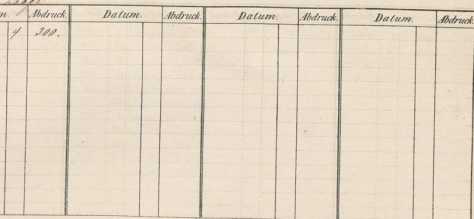 Abdruck. Datum. Abdruck. Datum. Abdruck. Datum. Abdruck.
300.